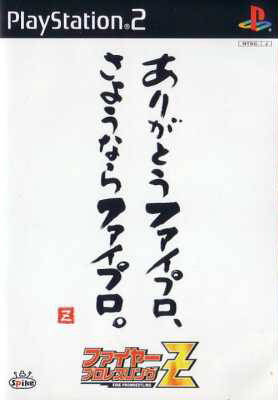 PlayStation®2
PlayStation
NTSC J
ありがとうファイプロ、
さようならファイプロ。
Z
Spike
ファイヤー
プロレスリング
Z
FIRE PROWRESTLING